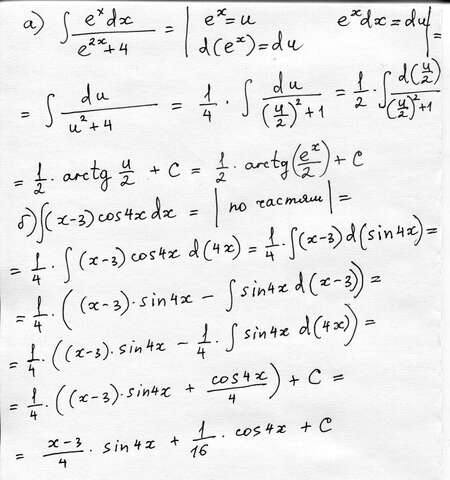 а) ∫ eˣdx / (e²ˣ+4) = | eˣ=u eˣdx=du d(eˣ)=du | =
= ∫ du / (u²+4) = 1/4 · ∫ du / ((u/2)²+1) = 1/2 · ∫ d(u/2) / ((u/2)²+1)
= 1/2 · arctg u/2 + C = 1/2 · arctg(eˣ/2) + C
б) ∫(x-3)cos4x dx = | по частям | =
= 1/4 · ∫ (x-3)cos4x d(4x) = 1/4 · ∫(x-3)d(sin4x) =
= 1/4 · ((x-3)·sin4x - ∫sin4x d(x-3)) =
= 1/4 · ((x-3)·sin4x - 1/4 · ∫ sin4x d(4x)) =
= 1/4 · ((x-3)·sin4x + cos4x/4) + C =
= (x-3)/4 · sin4x + 1/16 · cos4x + C